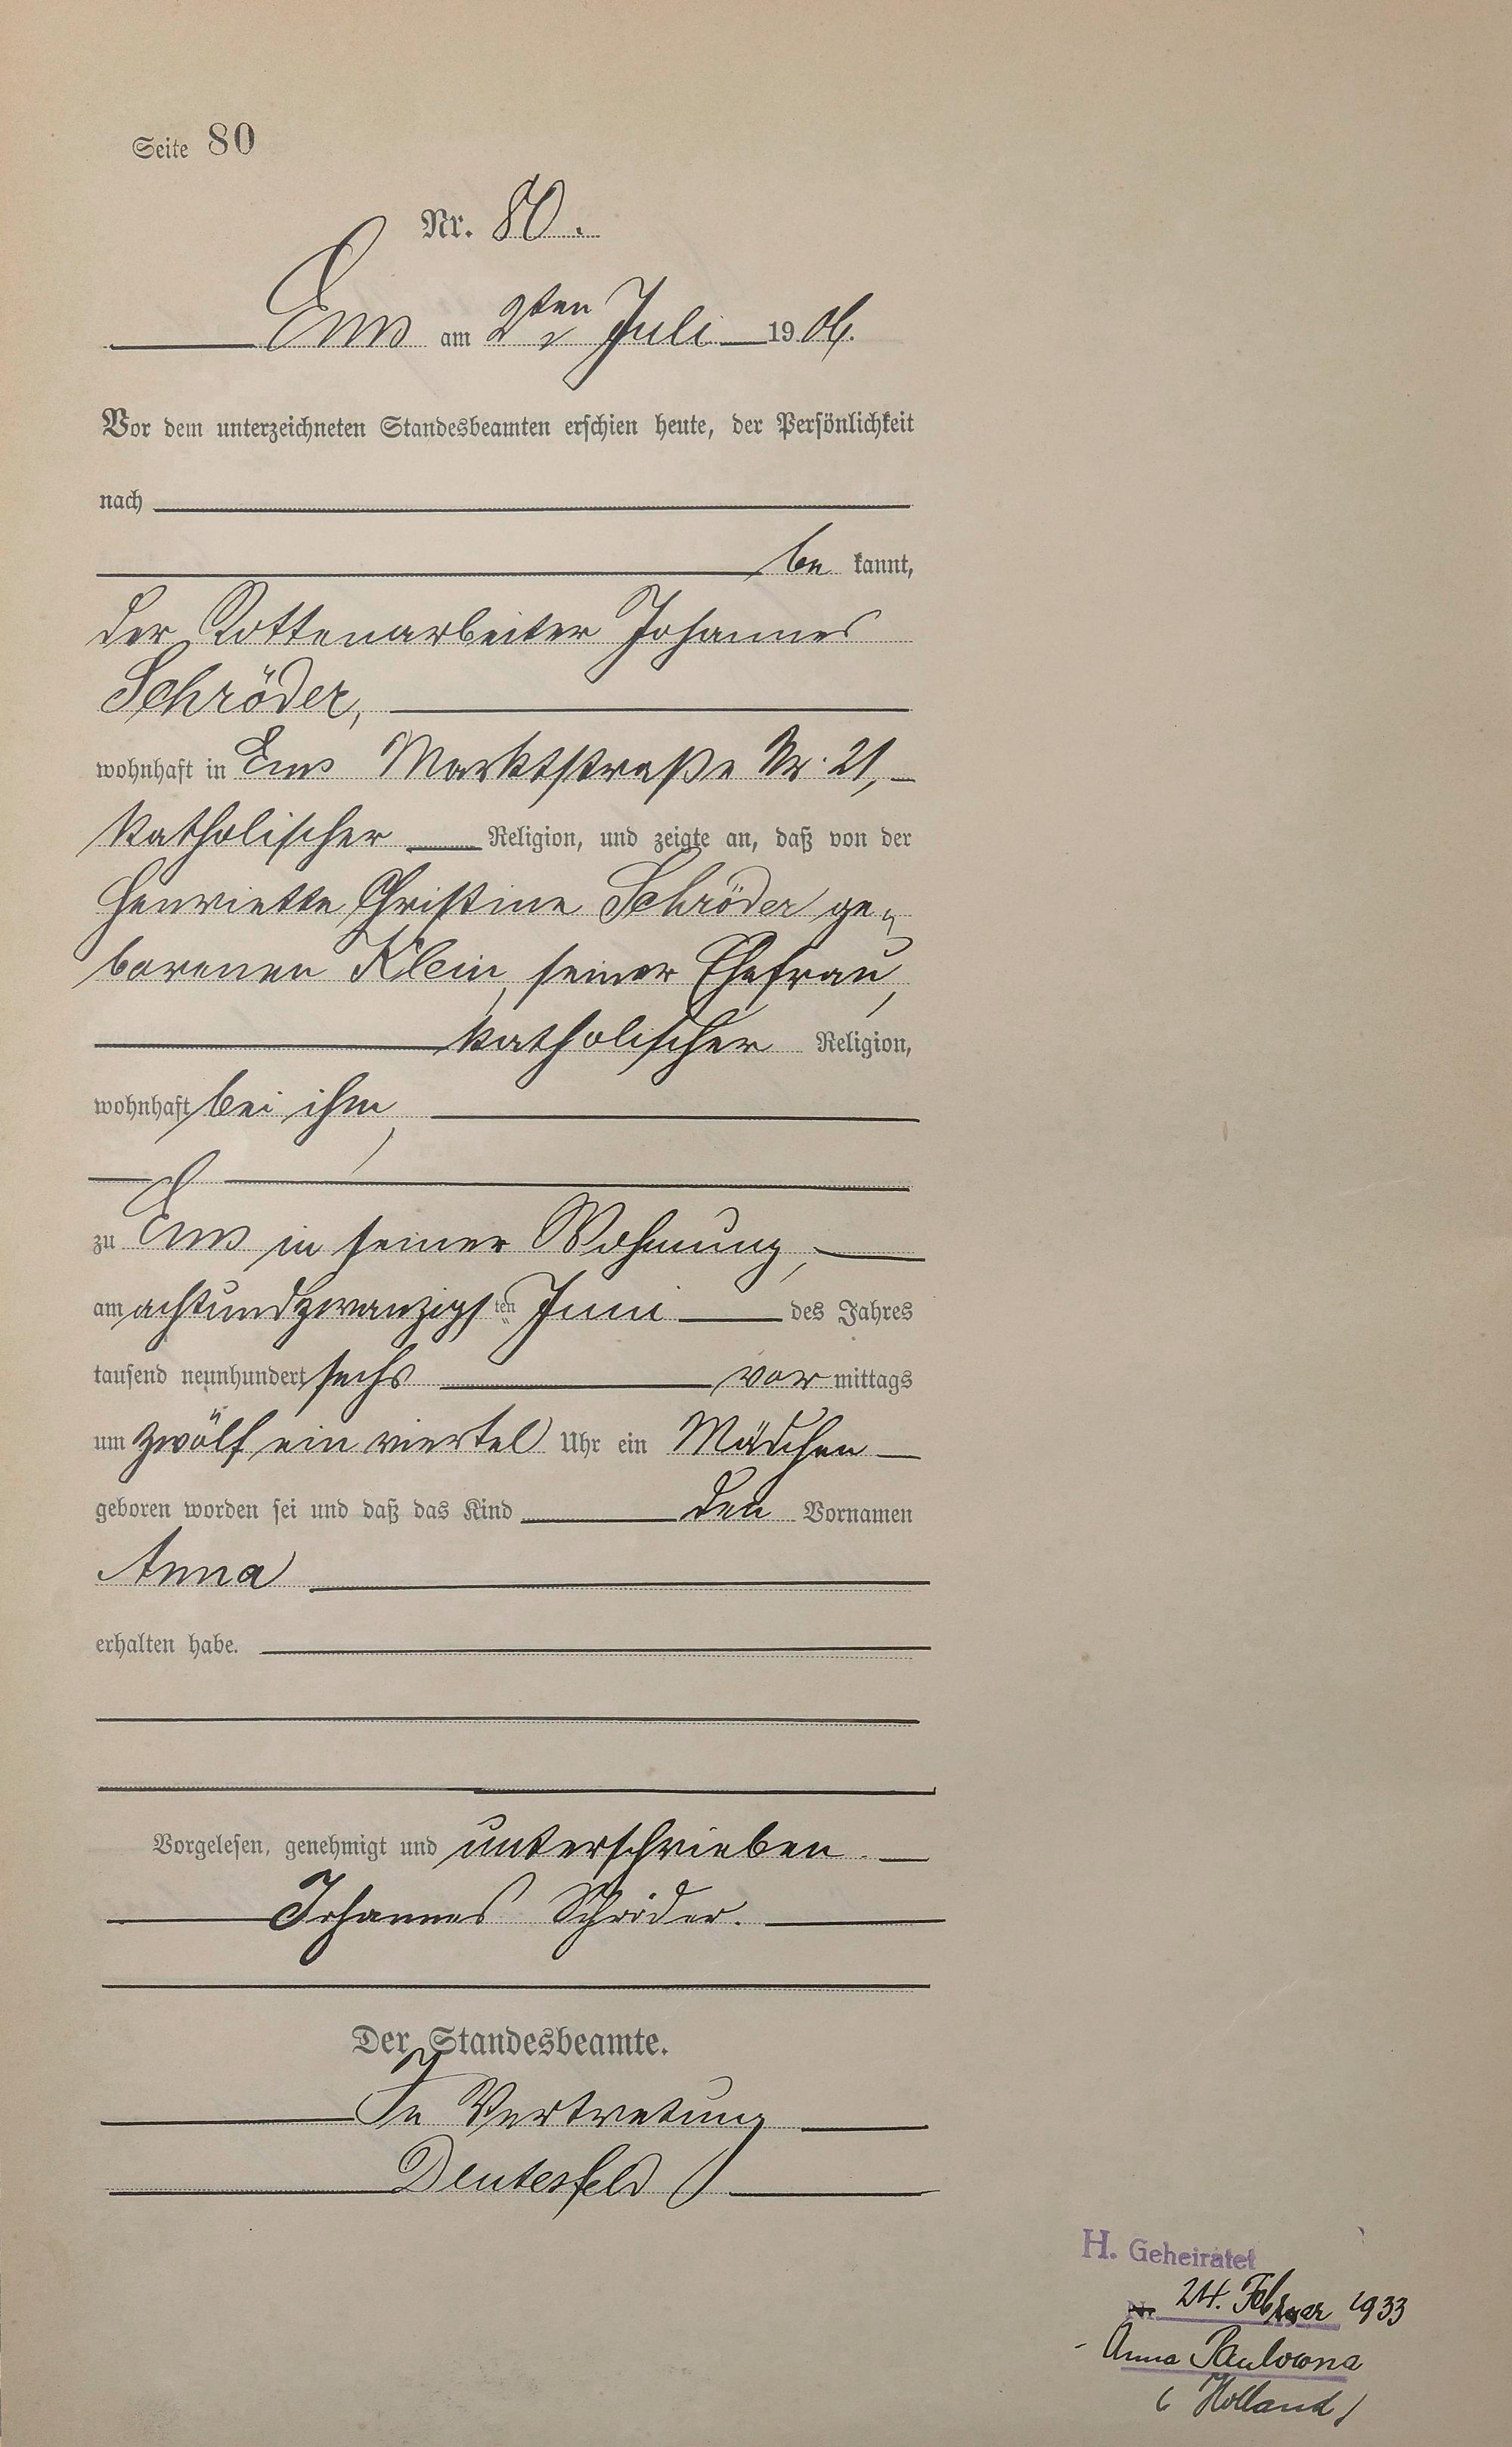 Seite 80
Nr. 80.
Ems am 2ten Juli 1906.
Vor dem unterzeichneten Standesbeamten erschien heute, der Persönlichkeit
nach
be kannt,
der Rottenarbeiter Johannes
Schröder,
wohnhaft in Ems Marktstraße Nr. 21,
katholischer Religion, und zeigte an, daß von der
Henriette Christine Schröder ge-
borenen Klein, seiner Ehefrau,
katholischer Religion,
wohnhaft bei ihm,
zu Ems in seiner Wohnung,
am achtundzwanzigsten Juni des Jahres
tausend neunhundert sechs vor mittags
um zwölf ein viertel Uhr ein Mädchen
geboren worden sei und daß das Kind den Vornamen
Anna
erhalten habe.
Vorgelesen, genehmigt und unterschrieben.
Johannes Schröder.
Der Standesbeamte.
In Vertretung
H. Geheiratet
Nr. 24. Februar 1933
Anna Paulowna
(Holland)